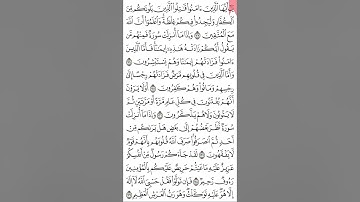 يَٰٓأَيُّهَا ٱلَّذِينَ ءَامَنُوا۟ قَٰتِلُوا۟ ٱلَّذِينَ يَلُونَكُم مِّنَ
ٱلْكُفَّارِ وَلْيَجِدُوا۟ فِيكُمْ غِلْظَةً ۚ وَٱعْلَمُوٓا۟ أَنَّ ٱللَّهَ
مَعَ ٱلْمُتَّقِينَ ١٢٣ وَإِذَا مَآ أُنزِلَتْ سُورَةٌ فَمِنْهُم مَّن
يَقُولُ أَيُّكُمْ زَادَتْهُ هَٰذِهِۦٓ إِيمَٰنًا ۚ فَأَمَّا ٱلَّذِينَ
ءَامَنُوا۟ فَزَادَتْهُمْ إِيمَٰنًا وَهُمْ يَسْتَبْشِرُونَ ١٢٤
وَأَمَّا ٱلَّذِينَ فِى قُلُوبِهِم مَّرَضٌ فَزَادَتْهُمْ رِجْسًا إِلَىٰ
رِجْسِهِمْ وَمَاتُوا۟ وَهُمْ كَٰفِرُونَ ١٢٥ أَوَلَا يَرَوْنَ
أَنَّهُمْ يُفْتَنُونَ فِى كُلِّ عَامٍ مَّرَّةً أَوْ مَرَّتَيْنِ ثُمَّ
لَا يَتُوبُونَ وَلَا هُمْ يَذَّكَّرُونَ ١٢٦ وَإِذَا مَآ أُنزِلَتْ
سُورَةٌ نَّظَرَ بَعْضُهُمْ إِلَىٰ بَعْضٍ هَلْ يَرَىٰكُم مِّنْ
أَحَدٍ ثُمَّ ٱنصَرَفُوا۟ ۚ صَرَفَ ٱللَّهُ قُلُوبَهُم بِأَنَّهُمْ قَوْمٌ
لَّا يَفْقَهُونَ ١٢٧ لَقَدْ جَآءَكُمْ رَسُولٌ مِّنْ أَنفُسِكُمْ
عَزِيزٌ عَلَيْهِ مَا عَنِتُّمْ حَرِيصٌ عَلَيْكُم بِٱلْمُؤْمِنِينَ
رَءُوفٌ رَّحِيمٌ ١٢٨ فَإِن تَوَلَّوْا۟ فَقُلْ حَسْبِىَ ٱللَّهُ لَآ إِلَٰهَ
إِلَّا هُوَ ۖ عَلَيْهِ تَوَكَّلْتُ ۖ وَهُوَ رَبُّ ٱلْعَرْشِ ٱلْعَظِيمِ ١٢٩